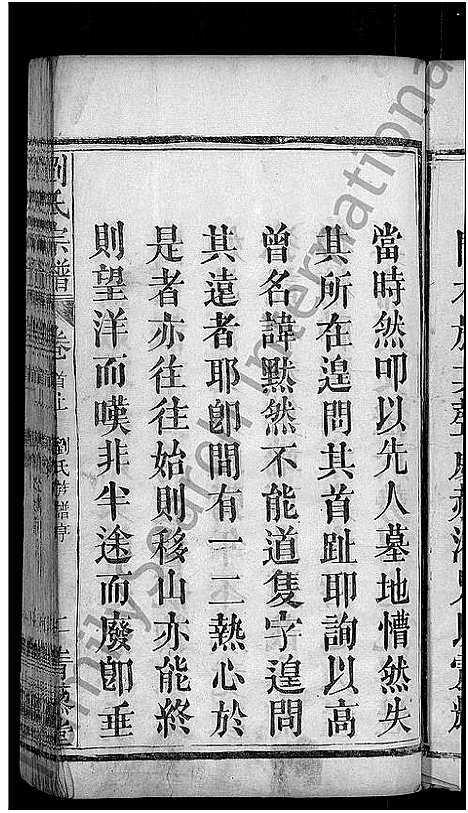 當時然叩以先人墓地懵然失
其所在遑問其首趾耶詢以高
曾名諱默然不能道隻字遑問
其遠者耶卽間有一二熱心於
是者亦往往始則移山亦能終
則望洋而嘆非半途而廢卽垂
劉氏宗譜 卷首上 劉氏 譜 二 堂
FamilySearch International